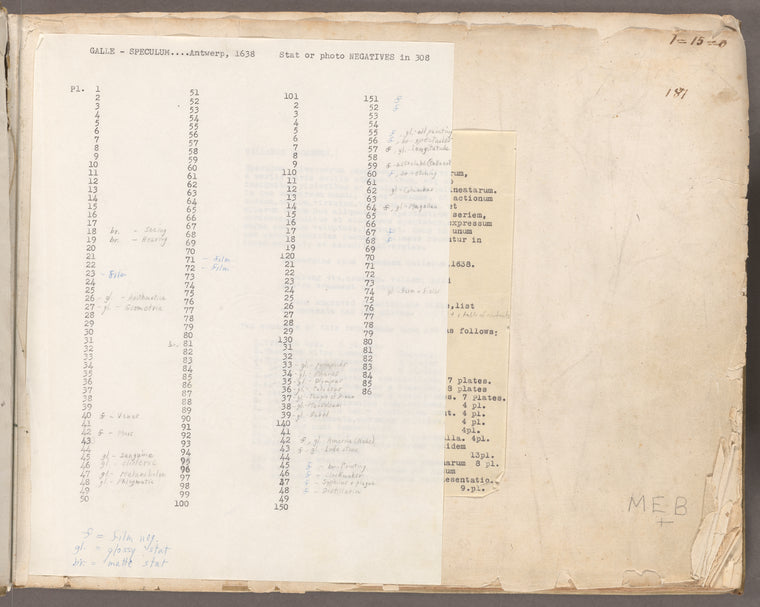 GALLE - SPECULUM....Antwerp, 1638 Stat or photo NEGATIVES in 308
Pl. 1
2
3
4
5
6
7
8
9
10
11
12
13
14
15
16
17
18 br. - Seeing
19 br. - Hearing
20
21
22
23 - Film
24
25
26 - gl - Arithmetica
27 - gl - Geometria
28
29
30
31
32
33
34
35
36
37
38
39
40 f - Venus
41
42 f - Mars
43
44
45 gl - Sanguine
46 gl - Choleric
47 gl - Melancholic
48 gl - Phlegmatic
49
50
51
52
53
54
55
56
57
58
59
60
61
62
63
64
65
66
67
68
69
70
71 - Film
72 - Film
73
74
75
76
77
78
79
80
br. 81
82
83
84
85
86
87
88
89
90
91
92
93
94
95
96
97
98
99
100
101
2
3
4
5
6
7
8
9
110
11
12
13
14
15
16
17
18
19
120
21
22
23
24
25
26
27
28
29
130
31
32
33 - gl -
34 - gl -
35 - gl - Olympus
36 - gl -
37 - gl - Temple of Diana
38 - gl -
39 - gl. Babel
140
41
42 f, gl. America
43 f, gl. Lodestone
44
45 f - br. Printing
46 f - Clockmaker
47 f - Syphilis + guagum
48 f - Distillatio
49
150
151 f
52 f
53
54
55 f, gl - oil painting
56 f, br.
57 f gl. - Longitude
58
59 f - Astrolabe
60 f, br - Etching
61
62 gl - Columbus
63
64 f, gl - Magellan
65
66
67 f
68 f
69
70
71
72
73
74 gl.
75
76
77
78
79
80
81
82
83
84
85
86
f = film neg.
gl. = glossy stat
br. = matte stat
rum,
neatarum.
actionum
et
seriem,
expressum
unum
ntur in
1638.
,list
as follows:
7 plates.
8 plates
s. 7 Plates.
4 pl.
t. 4 pl.
4 pl.
4pl.
lla. 4pl.
idem
13pl.
narum 8 pl.
um
esentatio.
9.pl.
1=15=0
181
MEB
+